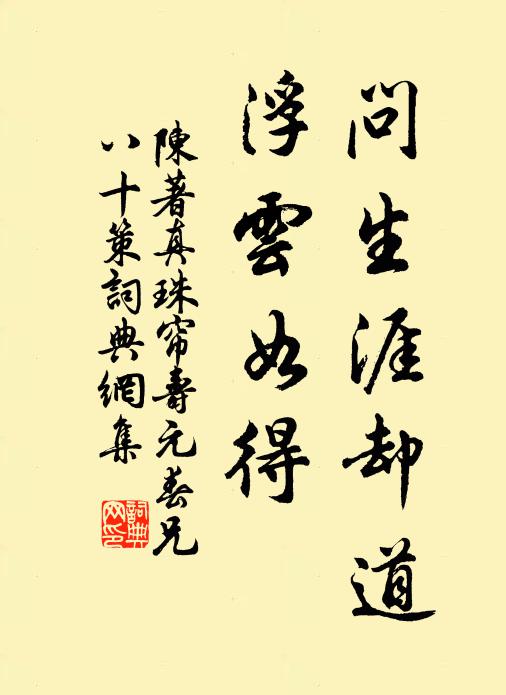 問生涯却道
浮雲如得
陳著真珠帘壽元春兄
八十策詞典網集
詞典网印